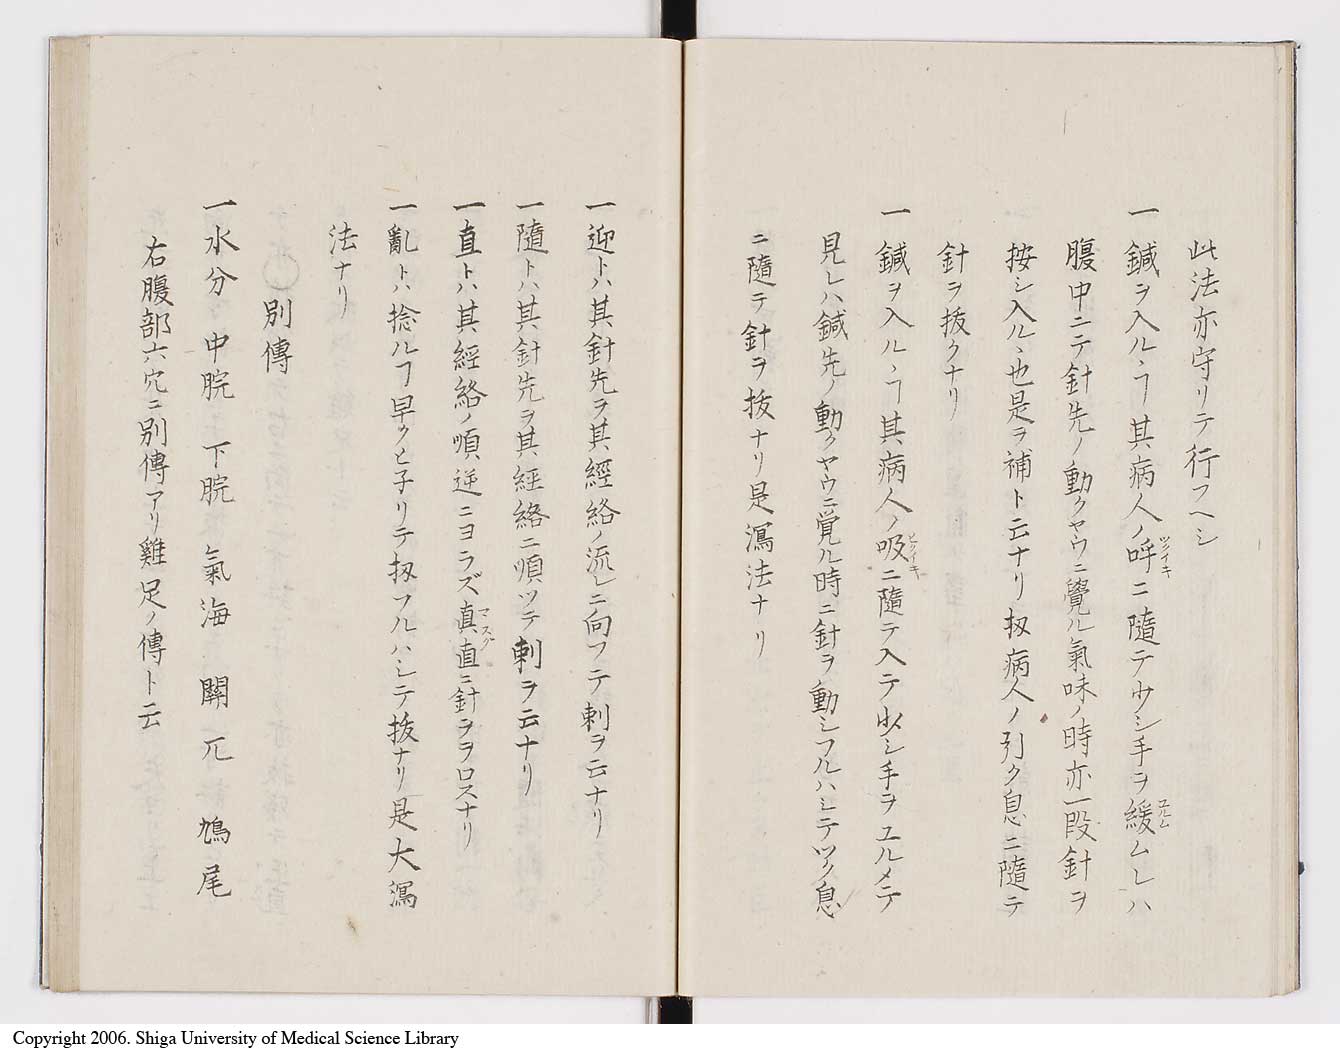 此法亦守リテ行フヘシ
一鍼ヲ入ルヽヿ其病人ノ呼ニ隨テ少シ手ヲ緩ムレハ
ツクイキ
ユルム
腹中ニテ針先ノ動クヤウニ覺ル氣味ノ時亦一段針ヲ
按シ入ルヽ也是ヲ補ト云ナリ扨病人ノ引ク息ニ隨テ
針ヲ拔クナリ
一鍼ヲ入ルヽヿ其病人ノ吸ニ隨テ入テ少シ手ヲユルメテ
ヒクイキ
見レハ鍼先ノ動クヤウニ覚ル時ニ針ヲ動シフルハシテツク息
ニ隨テ針ヲ拔ナリ是瀉法ナリ
一迎トハ其針先ヲ其經絡ノ流レニ向フテ刺ヲ云ナリ
一隨トハ其針先ヲ其經絡ニ順ツテ刺ヲ云ナリ
一直トハ其經絡ノ順逆ニヨラズ真直ニ針ヲヲロスナリ
マスグ
一亂トハ捻ルヿ早クヒ子リテ扨フルハシテ拔ナリ是大瀉
法ナリ
〇別傳
一水分 中脘 下脘 氣海 關兀 鳩尾
右腹部六穴ニ別傳アリ雞足ノ傳ト云
Copyright 2006. Shiga University of Medical Science Library